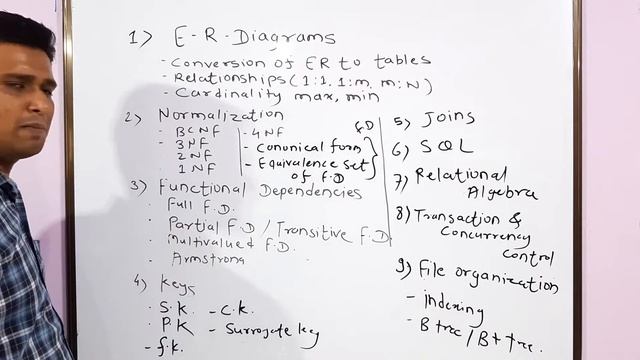 1) E-R-Diagrams
- Conversion of ER to tables
- Relationships (1:1, 1:m, m:N)
- Cardinality max, min
2) Normalization
- BCNF
- 3NF
2NF
1NF
- 4NF
- Cononical form
- Equivalence set
of F.D
FD
3) Functional Dependencies
. Full F.D.
. Partial F.D / Transitive F.D.
. Multivalued F.D.
. Armstrong
4) Keys
. S.K. - C.K.
. P.K - Surrogate key
- f.k.
5) Joins
6) SQL
7) Relational
Algebra
8) Transaction &
Concurrency
Control
9) File organization
- indexing
- B tree / B+ tree.